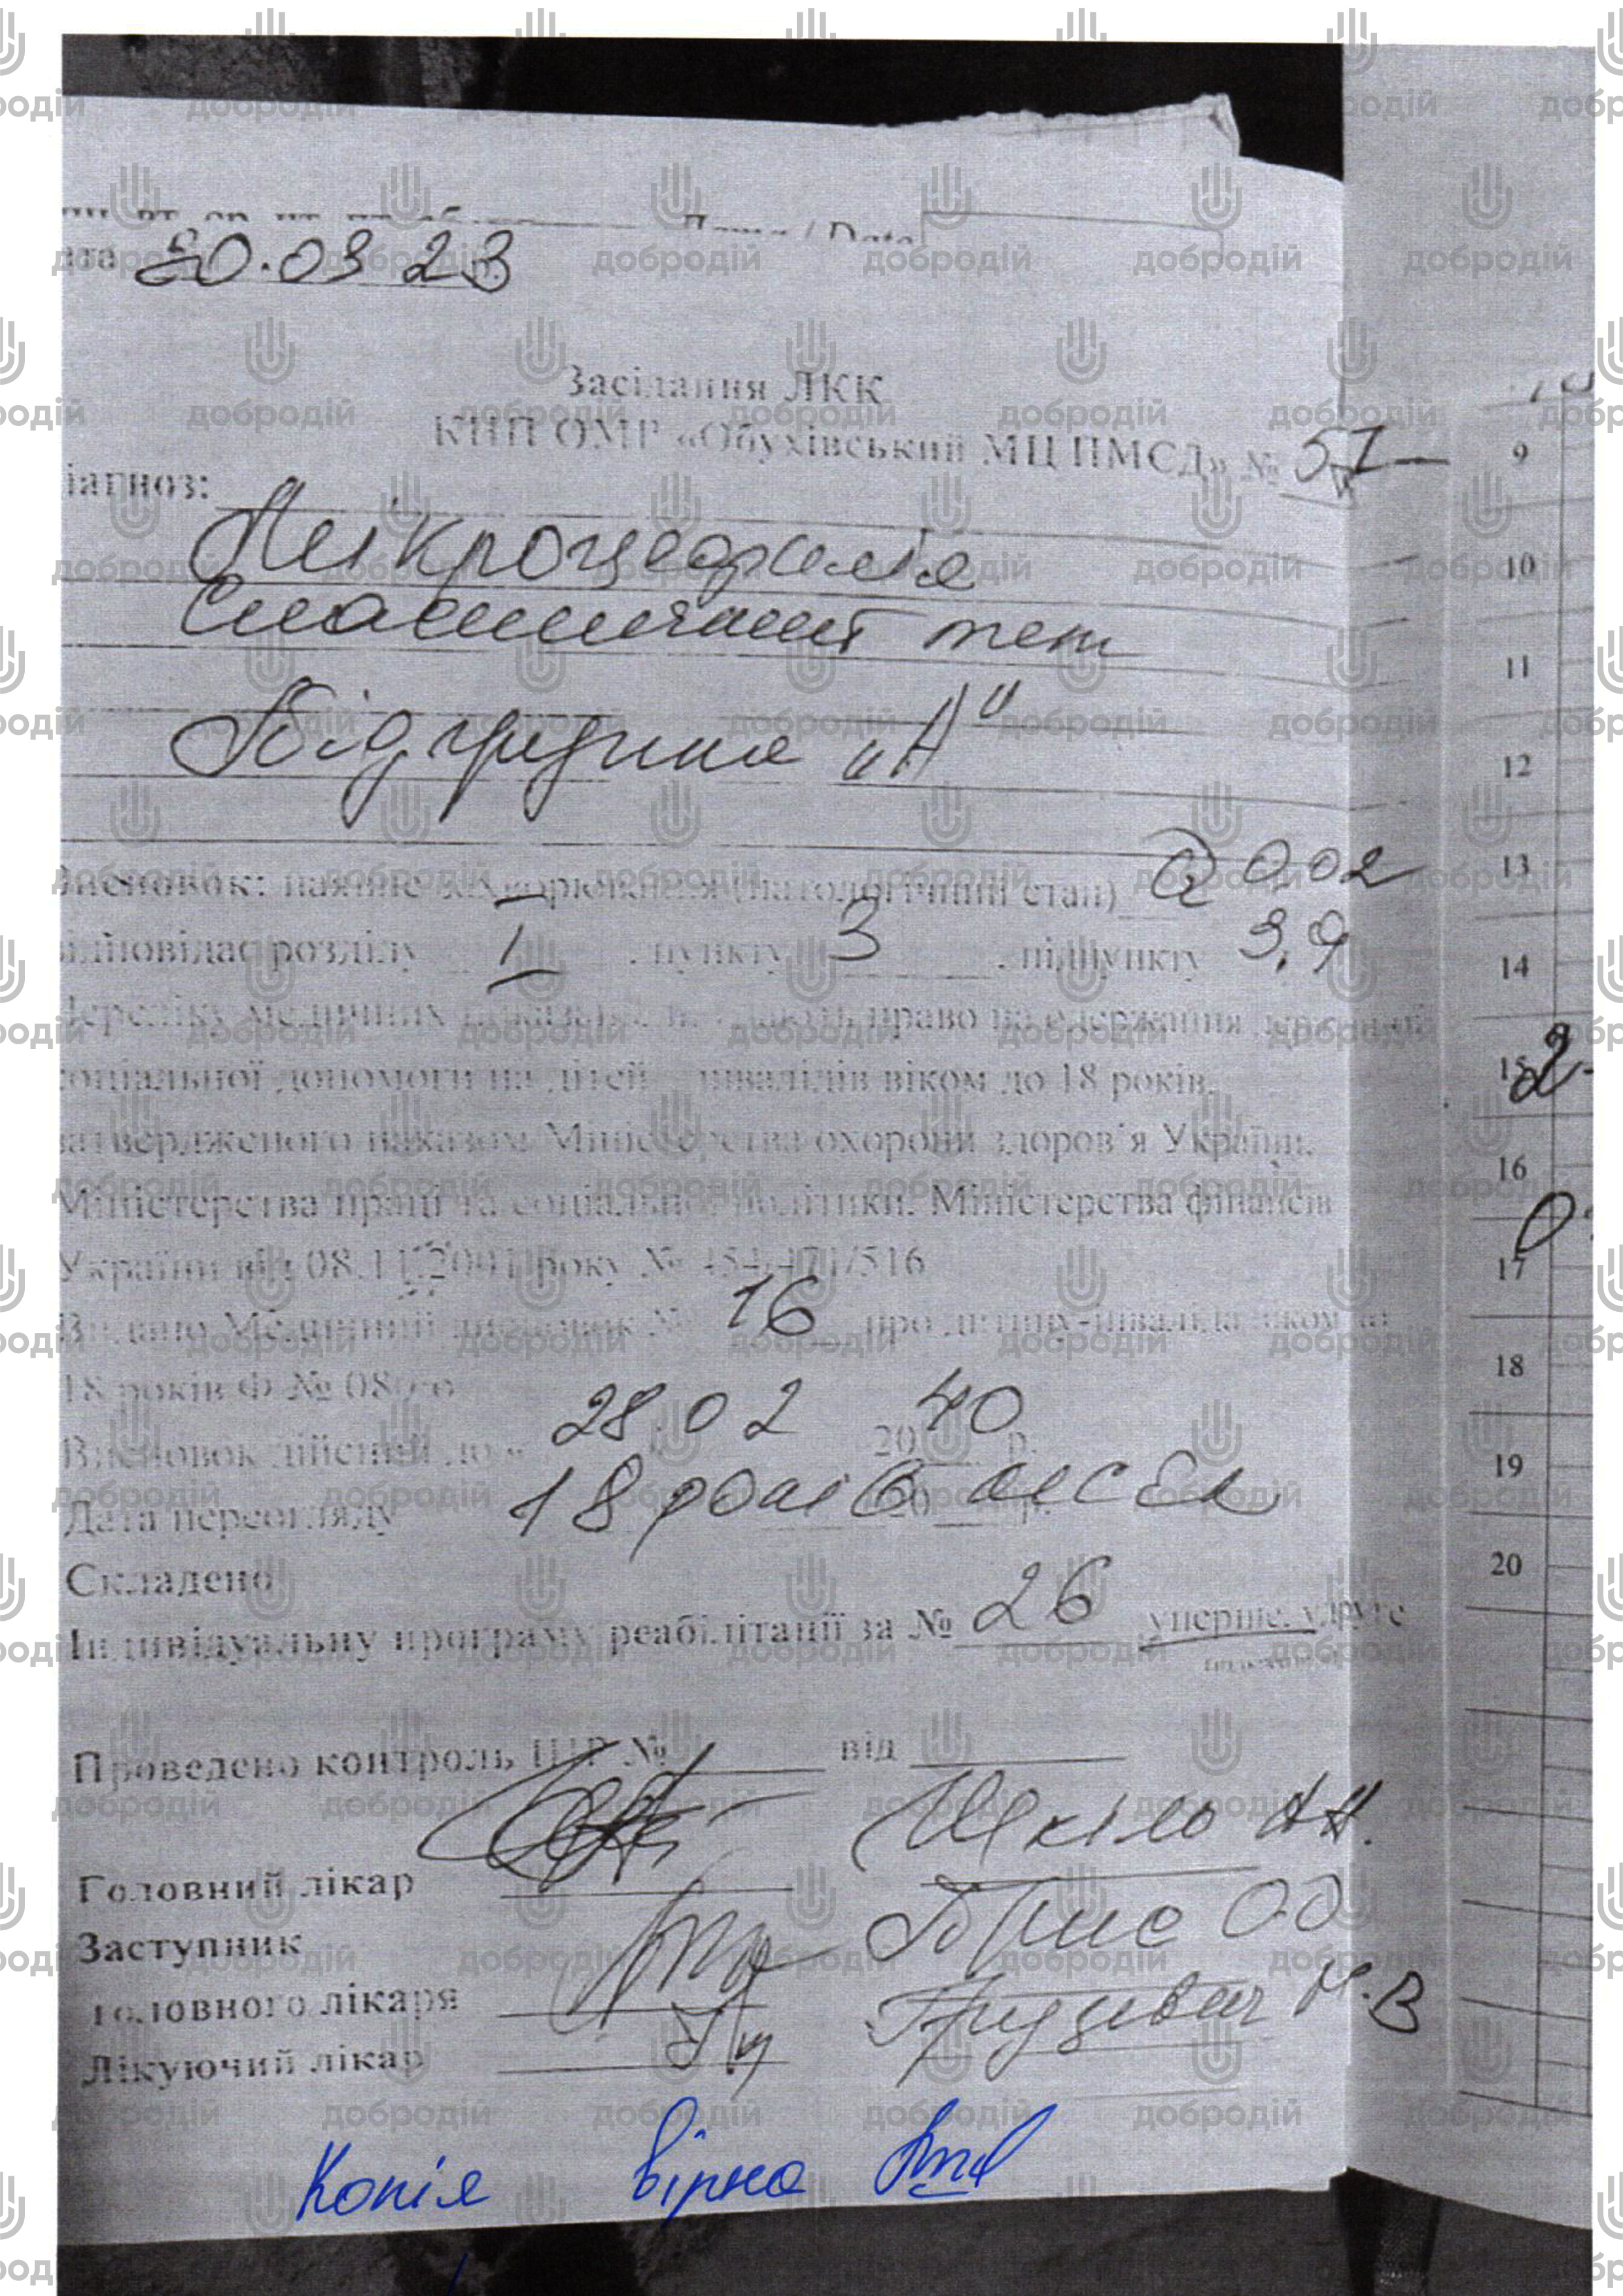 Дата / Date
ата 20.03 23
Засідання ЛКК
КНП ОМР «Обухівський МЦПМСД» № 57
іагноз:
Мікроцефалія
Спастичний тет
Підгрупа „А"
исновок: наявне захворювання (патологічний стан) Q 0.02
ідповідає розділу I . пункту 3 . підпункту 3.9
Переліку медичних показань, що дають право на одержання державної
соціальної допомоги на дітей – інвалідів віком до 18 років,
затвердженого наказом Міністерства охорони здоров'я України,
Міністерства праці та соціальної політики, Міністерства фінансів
України від 08.11.2001 року № 454/471/516
Видано Медичний висновок № 16 про дитину-інваліда віком до
18 років Ф № 080/о
Висновок дійсний до « 28 02 2040 р.
Дата переогляду 18 років 20 р.
Складено
Індивідуальну програму реабілітації за № 26 уперше, удруге
Проведено контроль ІПР № від
Головний лікар Шкіль
Заступник
головного лікаря О.О
Лікуючий лікар Н.В
Копія вірна
9
10
11
12
13
14
15
16
17
18
19
20
добродій